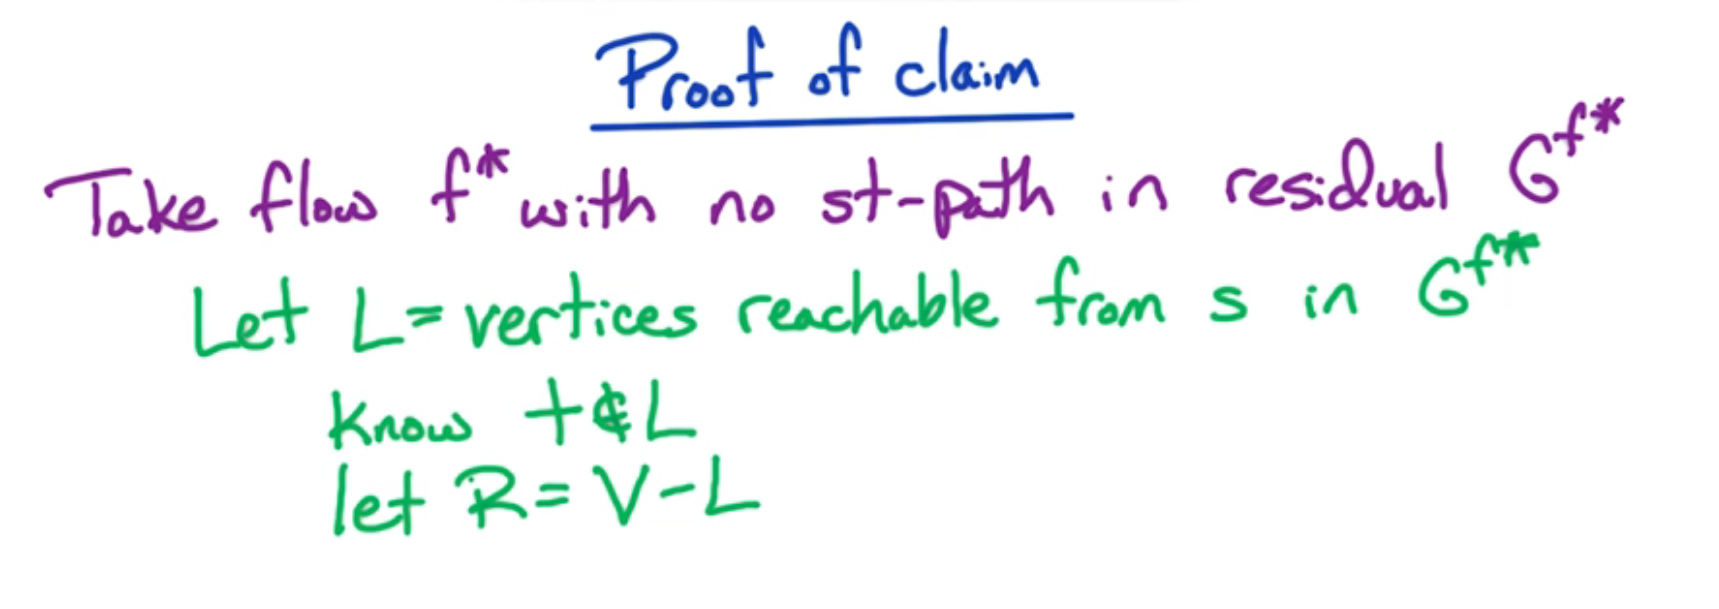 Proof of claim
Take flow f* with no st-path in residual G^f*
Let L = vertices reachable from s in G^f*
Know t ∉ L
let R = V - L